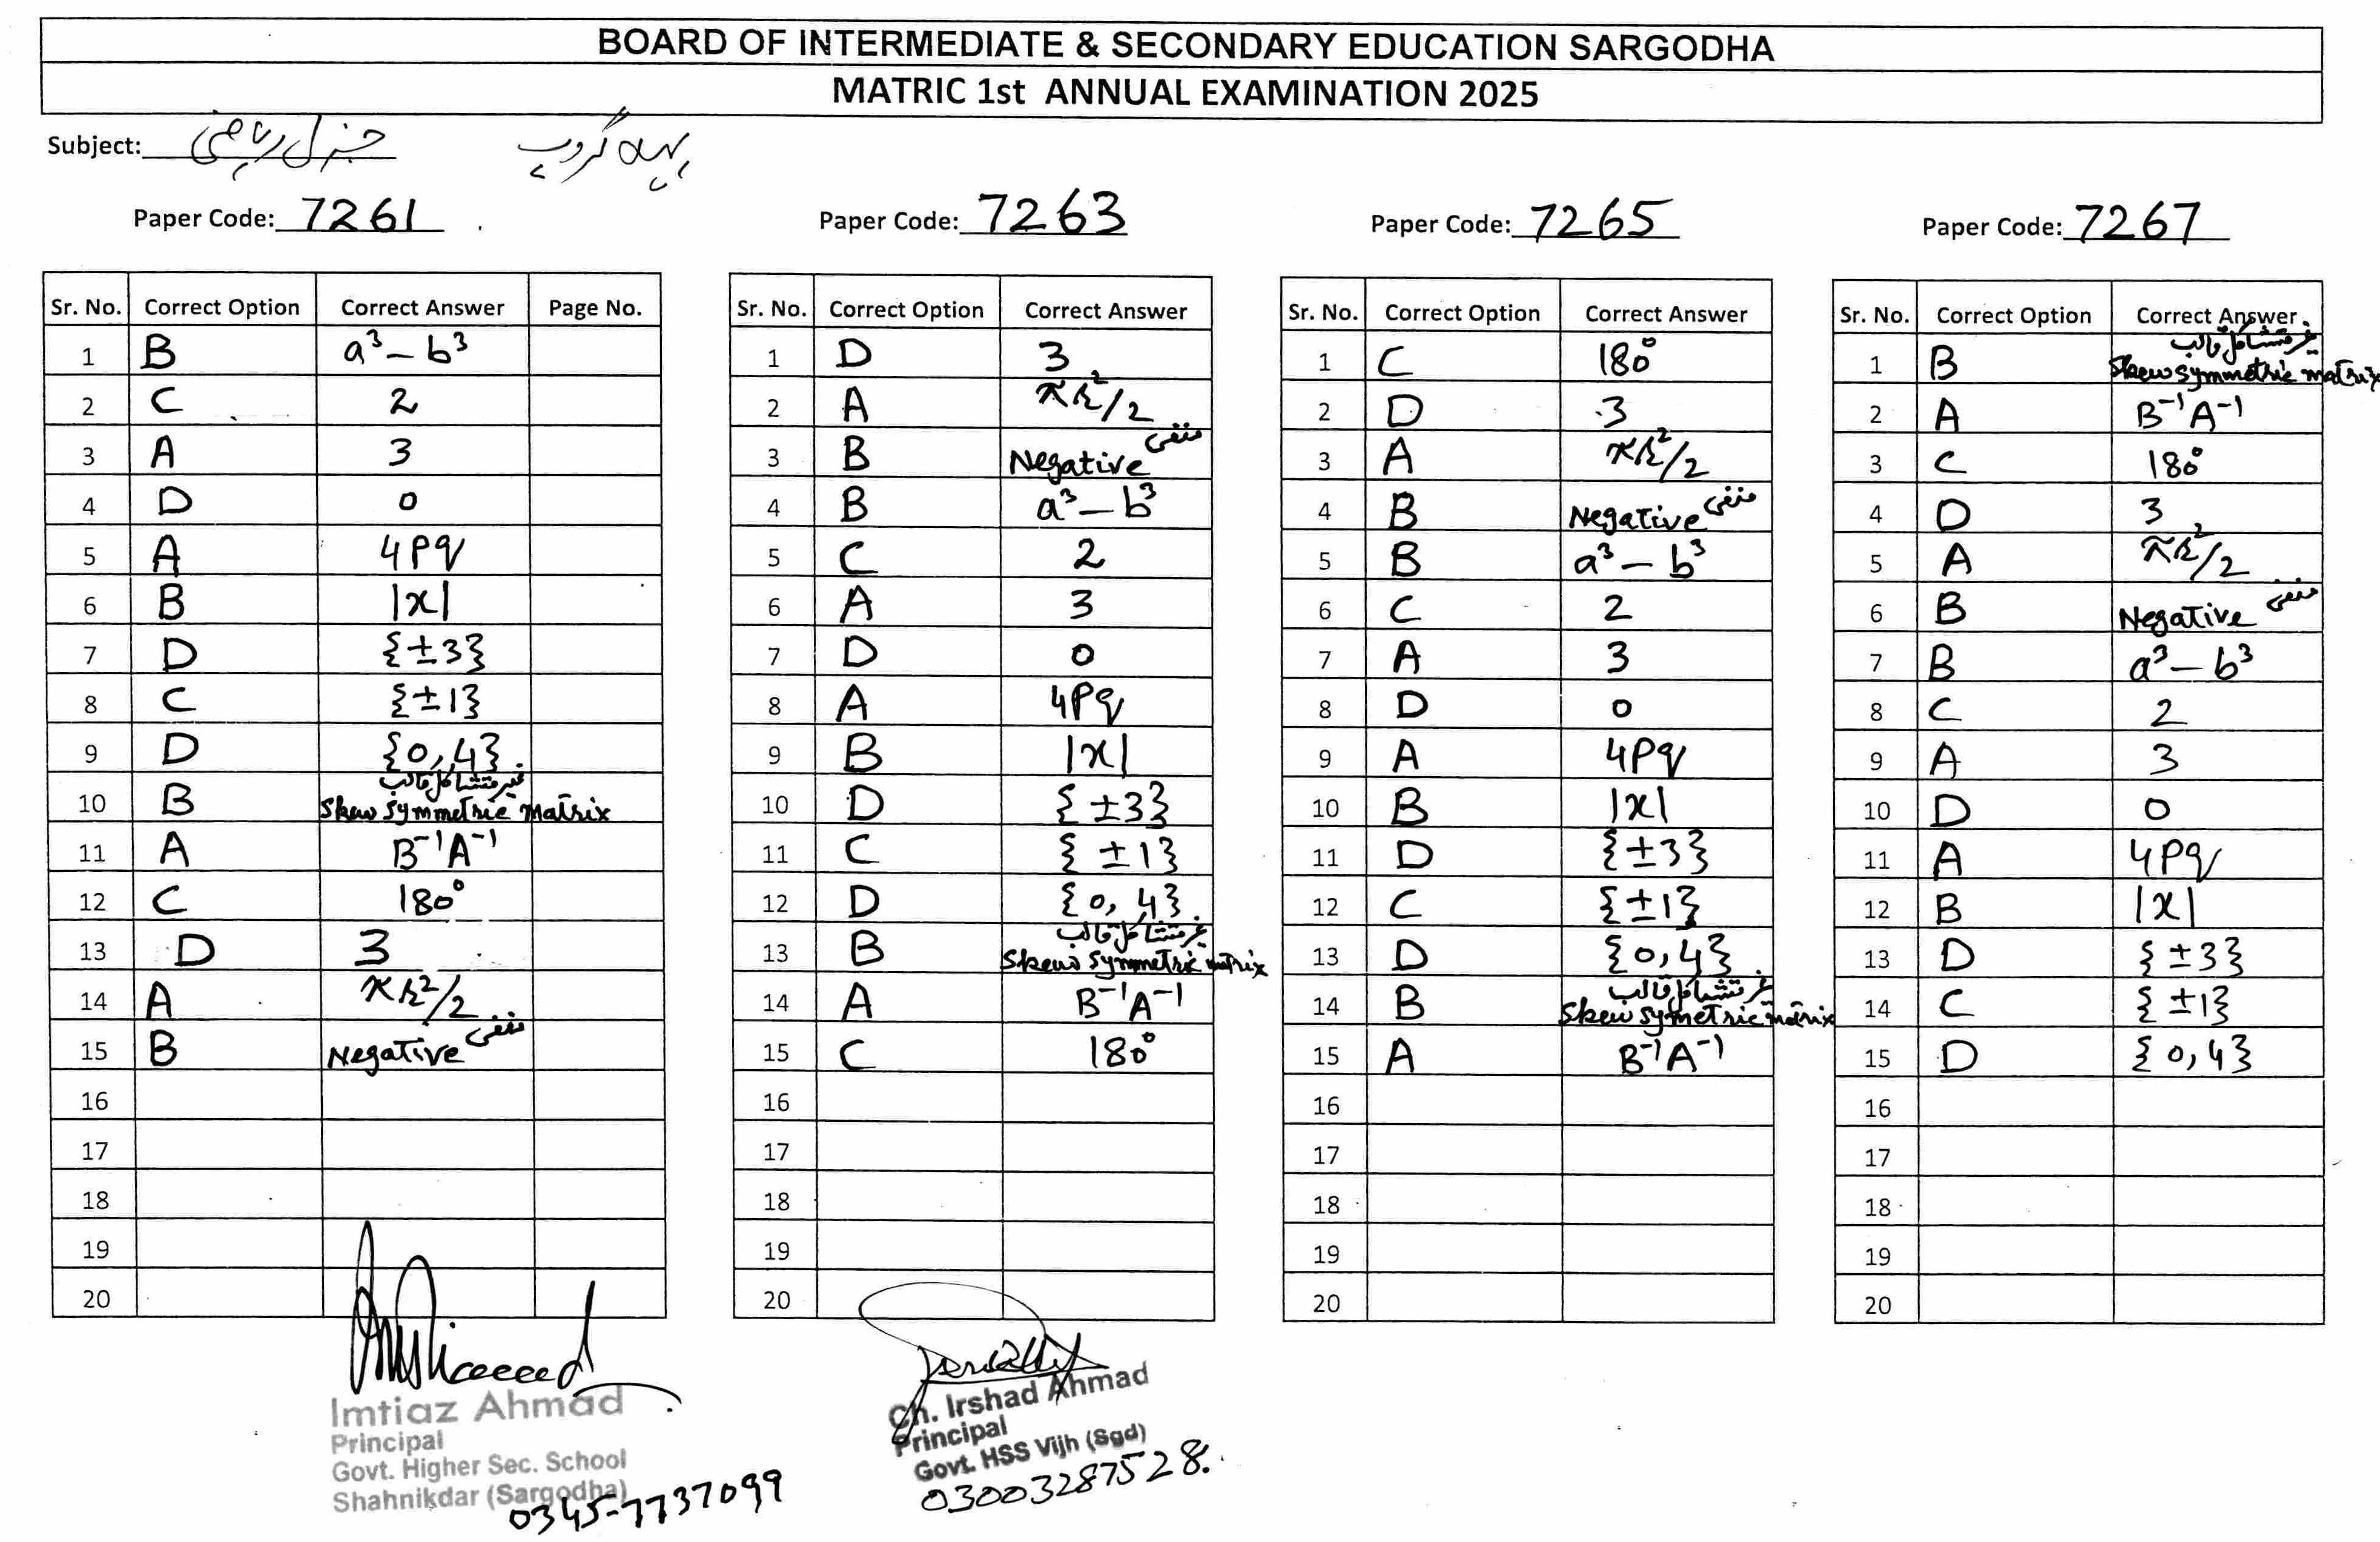 BOARD OF INTERMEDIATE & SECONDARY EDUCATION SARGODHA
MATRIC 1st ANNUAL EXAMINATION 2025
Subject: جنرل ریاضی پہلا گروپ
Paper Code: 7261
Sr. No. Correct Option Correct Answer Page No.
1 B a³ – b³
2 C 2
3 A 3
4 D 0
5 A 4pq
6 B |x|
7 D {±3}
8 C {±1}
9 D {0, 4}
10 B غیر متشاکل قالب
Skew symmetric matrix
11 A B⁻¹A⁻¹
12 C 180°
13 D 3
14 A πr²/2
15 B Negative منفی
16
17
18
19
20
Paper Code: 7263
Sr. No. Correct Option Correct Answer
1 D 3
2 A πr²/2
3 B Negative منفی
4 B a³ – b³
5 C 2
6 A 3
7 D 0
8 A 4pq
9 B |x|
10 D {±3}
11 C {±1}
12 D {0, 4}
13 B غیر متشاکل قالب
Skew symmetric matrix
14 A B⁻¹A⁻¹
15 C 180°
16
17
18
19
20
Paper Code: 7265
Sr. No. Correct Option Correct Answer
1 C 180°
2 D 3
3 A πr²/2
4 B Negative منفی
5 B a³ – b³
6 C 2
7 A 3
8 D 0
9 A 4pq
10 B |x|
11 D {±3}
12 C {±1}
13 D {0, 4}
14 B غیر متشاکل قالب
Skew symetric matrix
15 A B⁻¹A⁻¹
16
17
18
19
20
Paper Code: 7267
Sr. No. Correct Option Correct Answer
1 B غیر متشاکل قالب
Skew symmetric matrix
2 A B⁻¹A⁻¹
3 C 180°
4 D 3
5 A πr²/2
6 B Negative منفی
7 B a³ – b³
8 C 2
9 A 3
10 D 0
11 A 4pq
12 B |x|
13 D {±3}
14 C {±1}
15 D {0, 4}
16
17
18
19
20
Imtiaz Ahmad
Principal
Govt. Higher Sec. School
Shahnikdar (Sargodha)
0345-7737099
Ch. Irshad Ahmad
Principal
Govt. HSS Vijh (Sgd)
03003287528.